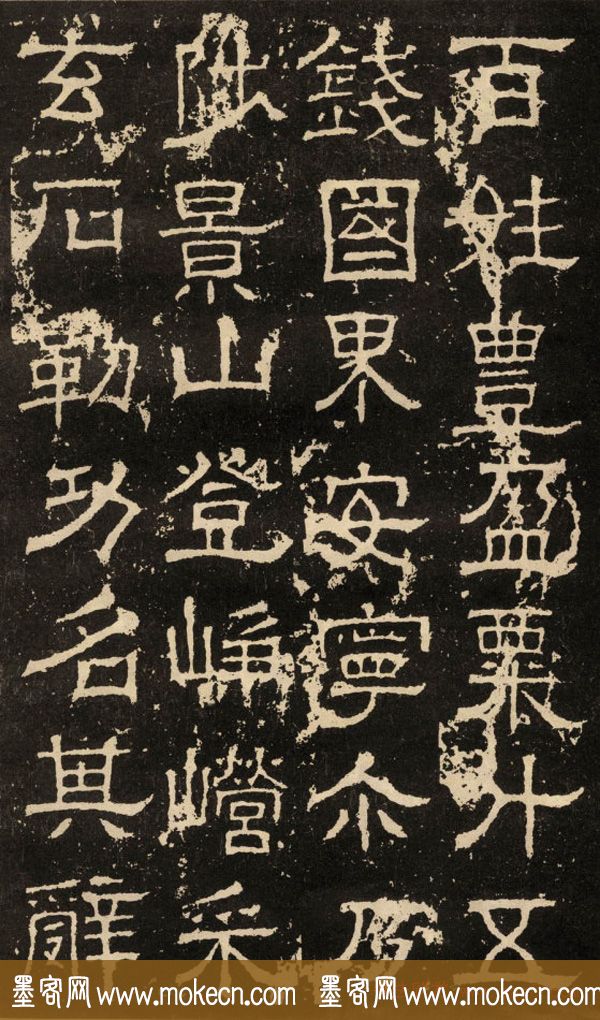 百姓豐盈粟升五
錢國界安寧尒乃
陟景山登崢巆采
玄石勒功名其辭
墨客网 www.mokecn.com 墨客网 www.mokecn.com